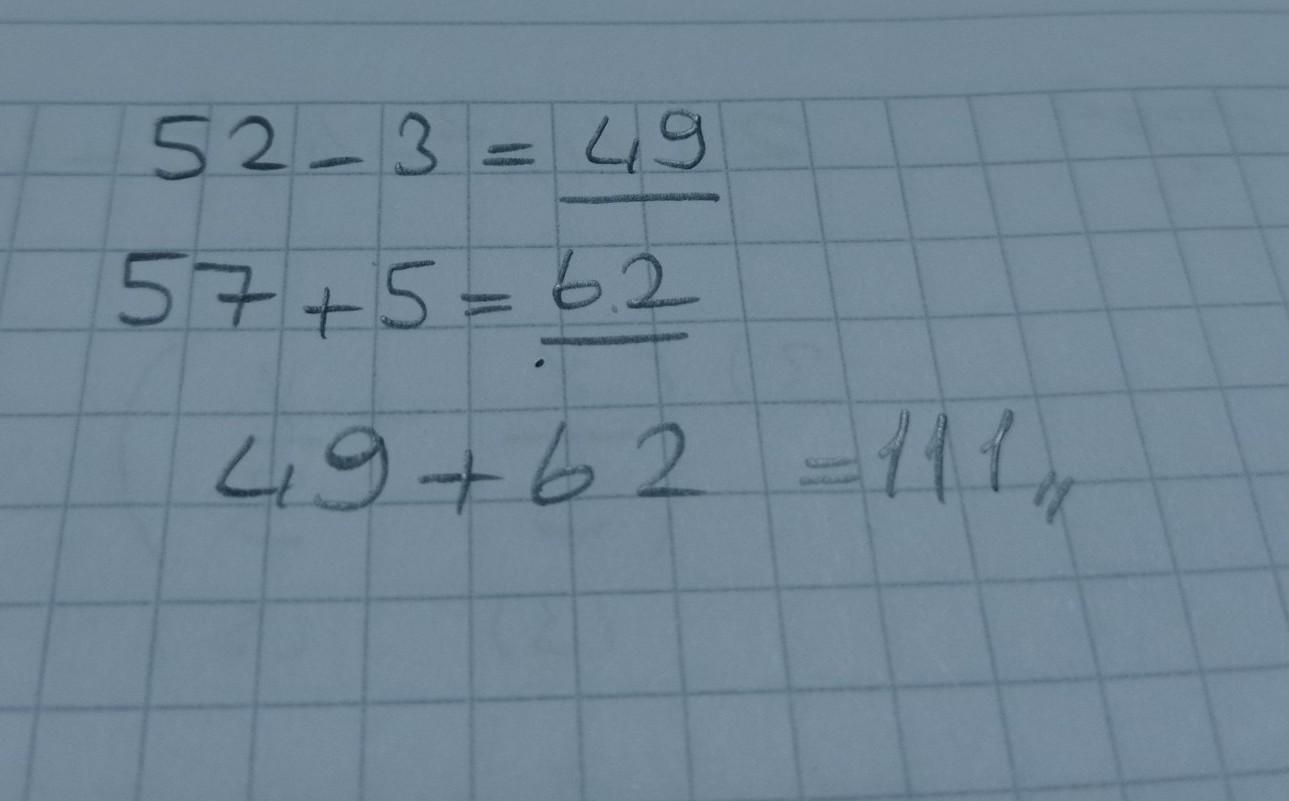 52 - 3 = 49
57 + 5 = 62
49 + 62 = 111,,